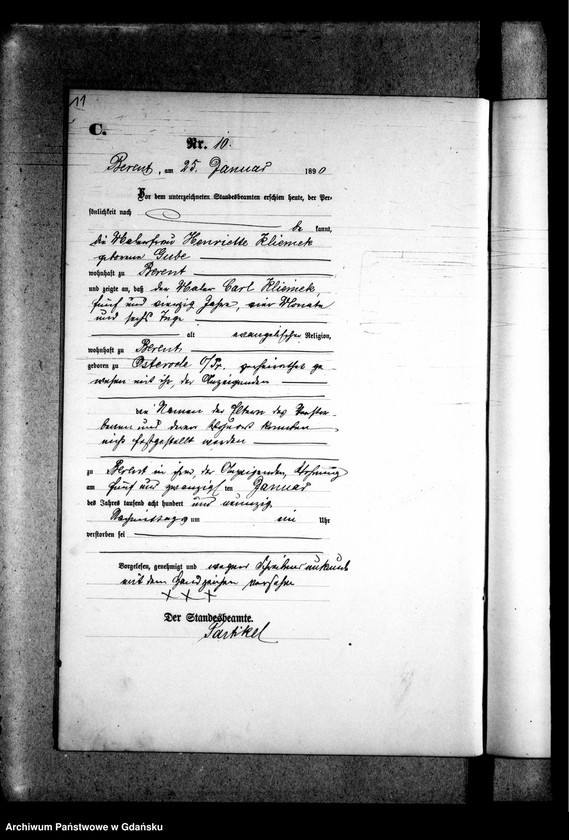 11
C.
Nr. 10.
Berent, am 25. Januar 1890
Vor dem unterzeichneten Standesbeamten erschien heute, der Per-
sönlichkeit nach
be kannt,
die Malerfrau Henriette Klismek
geborene Gube
wohnhaft zu Berent
und zeigte an, daß der Maler Carl Klismek,
fünf und vierzig Jahre, vier Monate
und sechs Tage
alt evangelischer Religion,
wohnhaft zu Berent
geboren zu Osterode O/Pr. verheirathet ge
wesen mit ihr, der Anzeigenden
die Namen der Eltern des Verstor-
benen und deren Wohnort konnten
nicht festgestellt werden
zu Berent in ihrer, der Anzeigenden, Wohnung
am fünf und zwanzigsten Januar
des Jahres tausend acht hundert und neunzig
Nachmittags um ein Uhr
verstorben sei
Vorgelesen, genehmigt und wegen Schreibensunkunde
mit dem Handzeichen versehen
+ + +
Der Standesbeamte.
Partikel
Archiwum Państwowe w Gdańsku